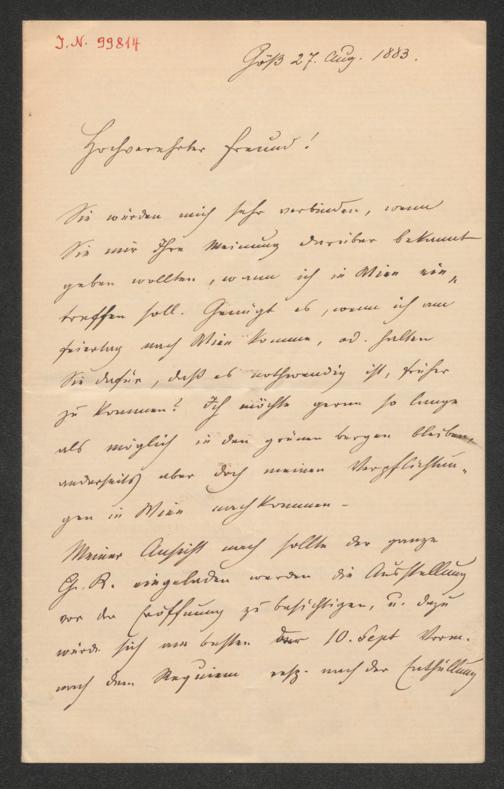 J. N. 99814
Göß 27. Aug. 1883.
Hochverehrter Freund!
Sie würden mich sehr verbinden, wenn
Sie mir Ihre Meinung darüber bekannt
geben wollten, wann ich in Wien ein-
treffen soll. Genügt es, wenn ich am
Feiertag nach Wien komme, od. halten
Sie dafür, daß es nothwendig ist, früher
zu kommen? Ich möchte gerne so lange
als möglich in den grünen Bergen bleiben,
anderseits aber doch meinen Verpflichtun-
gen in Wien nachkommen –
Meiner Ansicht nach sollte der ganze
G. R. eingeladen werden die Ausstellung
vor der Eröffnung zu besichtigen, u. dazu
würde sich am besten der 10. Sept Vorm.
nach dem Requiem resp. nach der Enthüllung